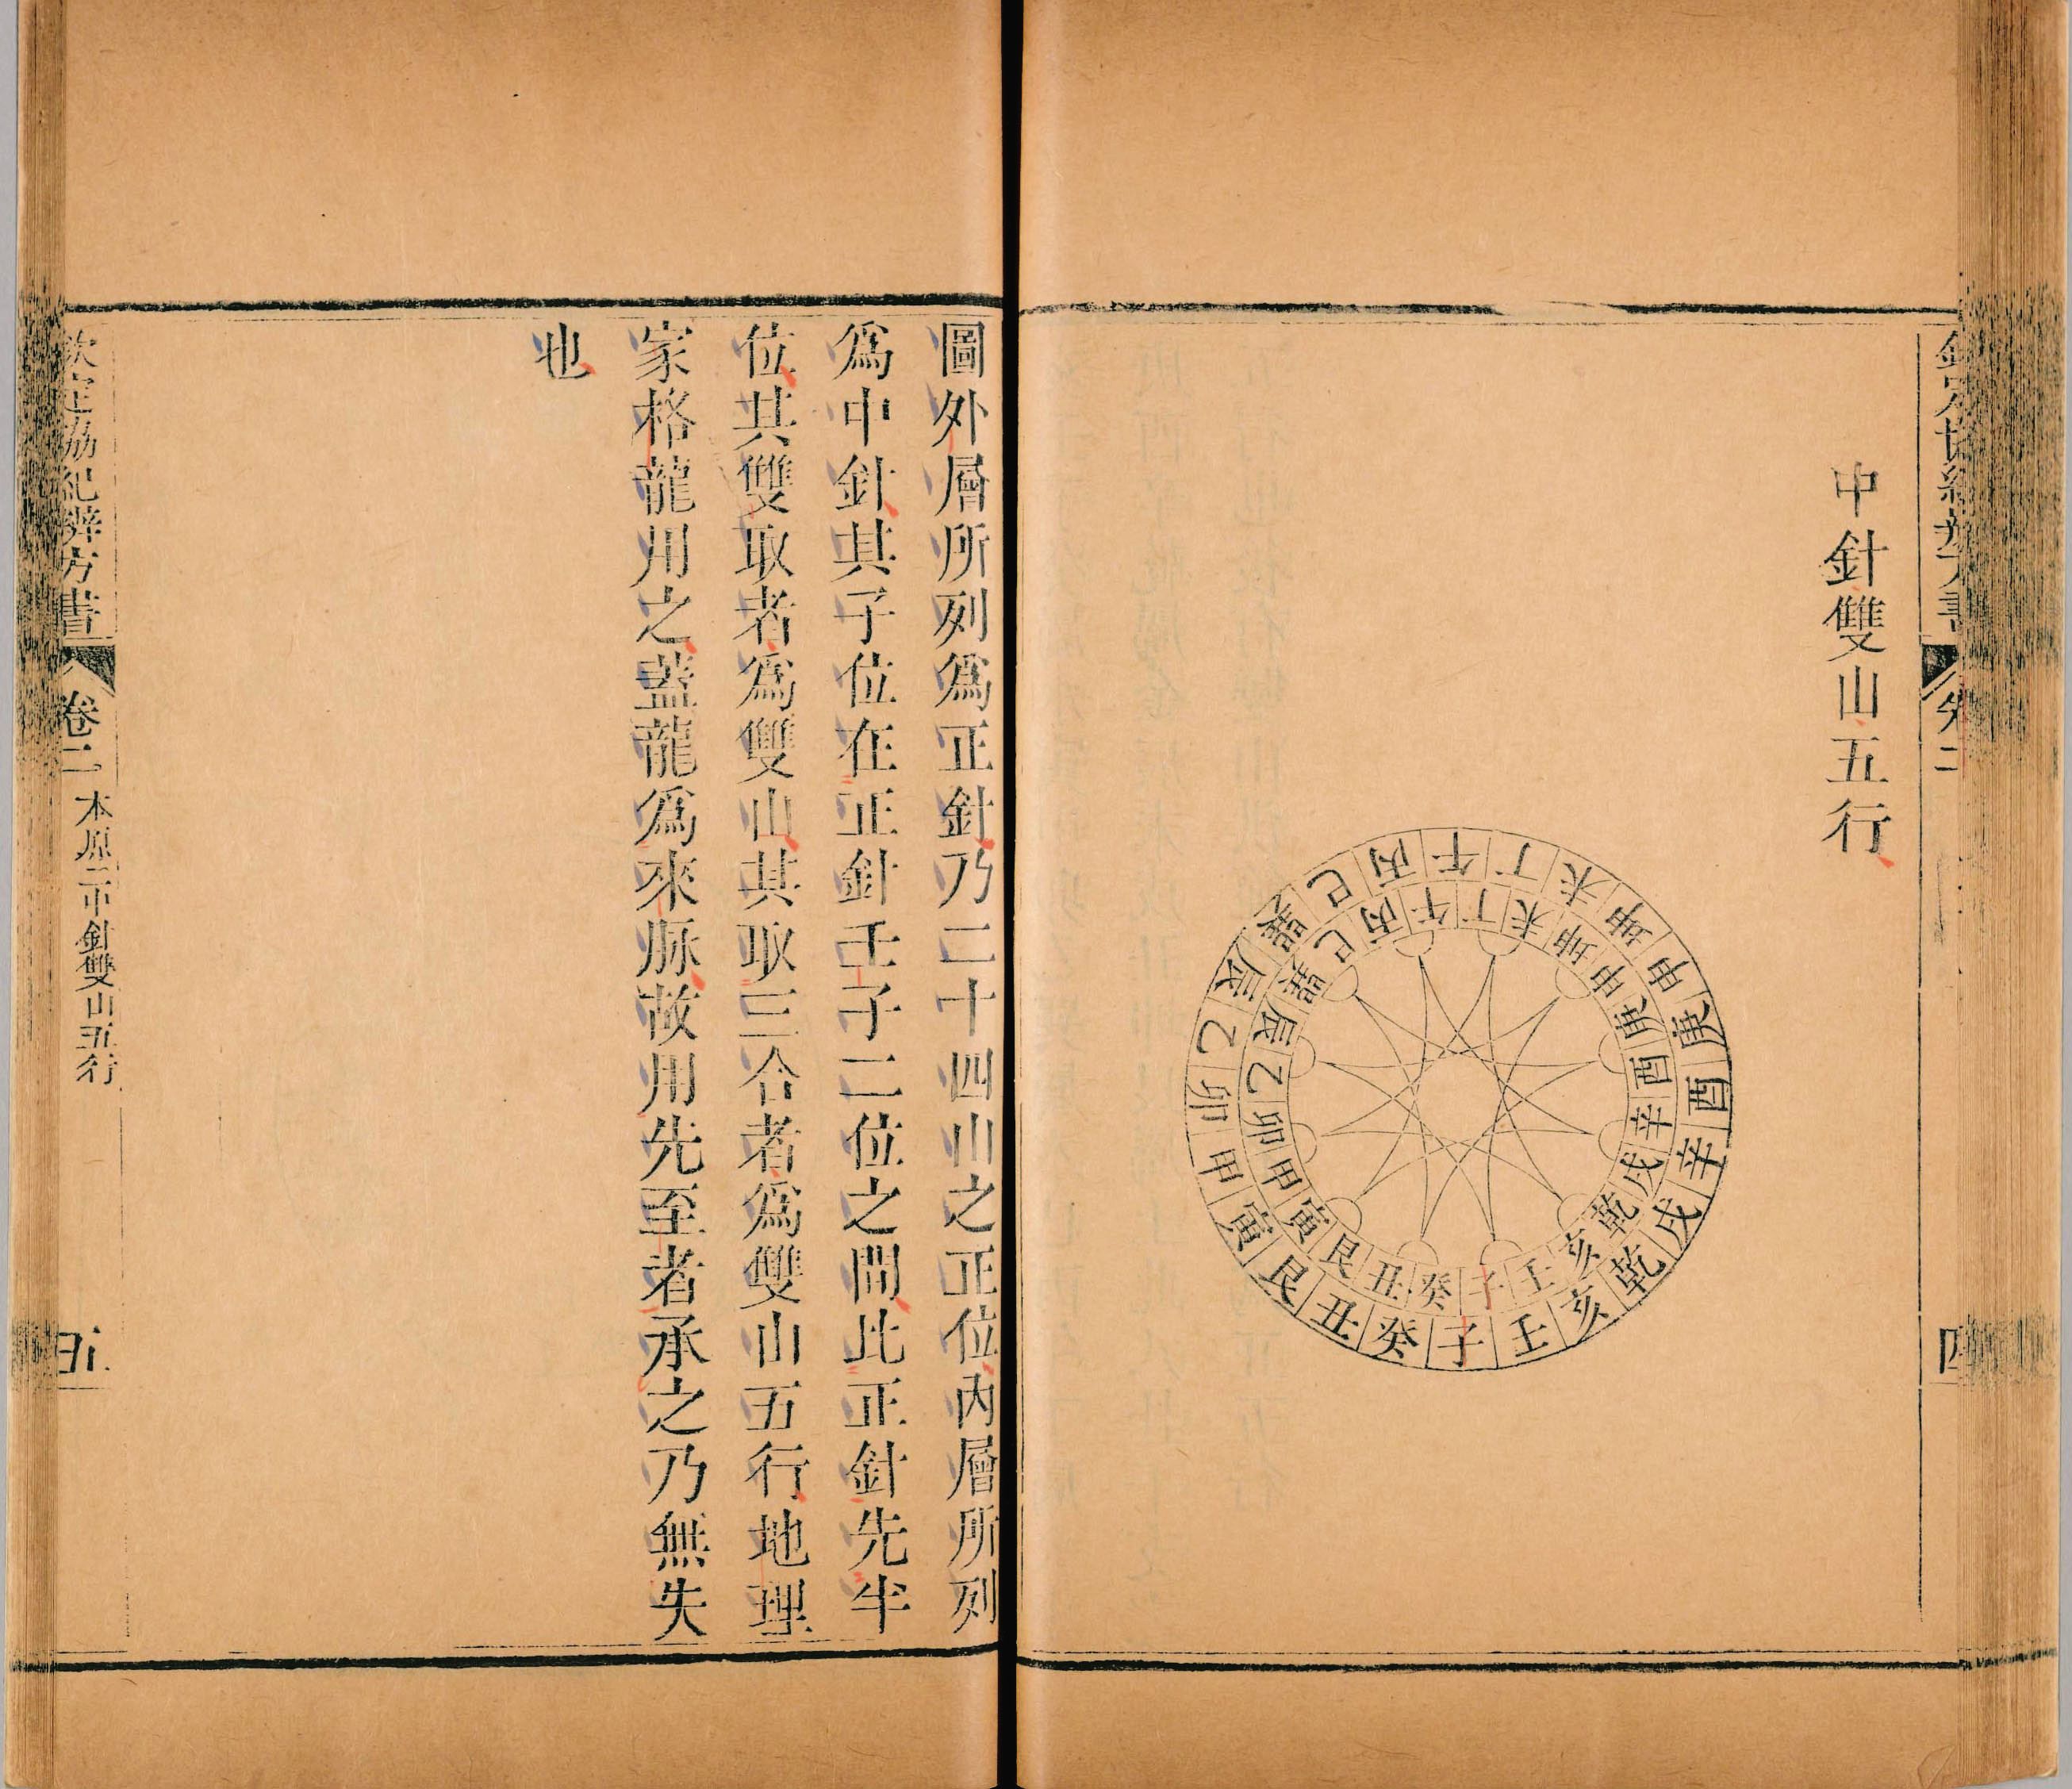 中針雙山五行
午丁未坤申庚酉辛戌乾亥壬子癸丑艮寅甲卯乙辰巽巳丙
午丁未坤申庚酉辛戌乾亥壬子癸丑艮寅甲卯乙辰巽巳丙
圖外層所列爲正針乃二十四山之正位內層所列
爲中針其子位在正針壬子二位之間此正針先半
位其雙取者爲雙山其取三合者爲雙山五行地理
家格龍用之葢龍爲來脉故用先至者承之乃無失
也
欽定協紀辨方書
卷二
本原二中針雙山五行
五